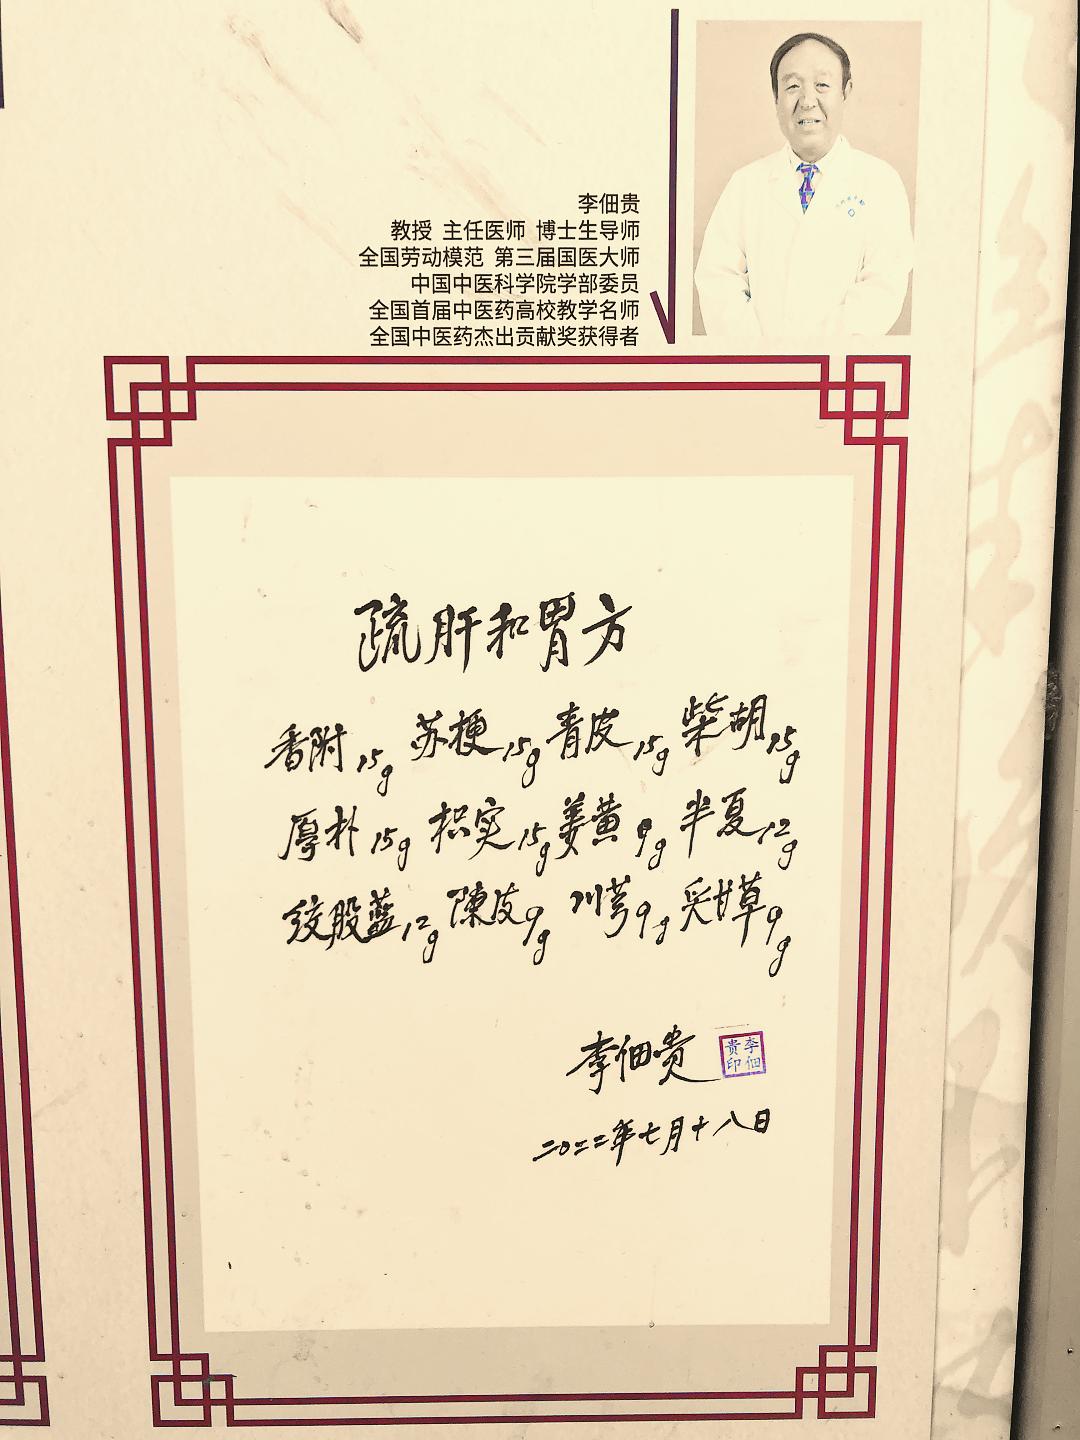 李佃贵
教授 主任医师 博士生导师
全国劳动模范 第三届国医大师
中国中医科学院学部委员
全国首届中医药高校教学名师
全国中医药杰出贡献奖获得者
疏肝和胃方
香附15g 苏梗15g 青皮15g 柴胡15g
厚朴15g 枳实15g 姜黄9g 半夏12g
绞股蓝12g 陳皮9g 川芎9g 炙甘草9g
李佃贵
李佃
贵印
二〇二二年七月十八日